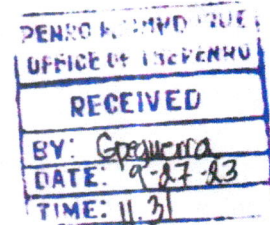 PENRO
OFFICE OF THE PENRO
RECEIVED
BY:
DATE: 9-27-23
TIME: 11:31